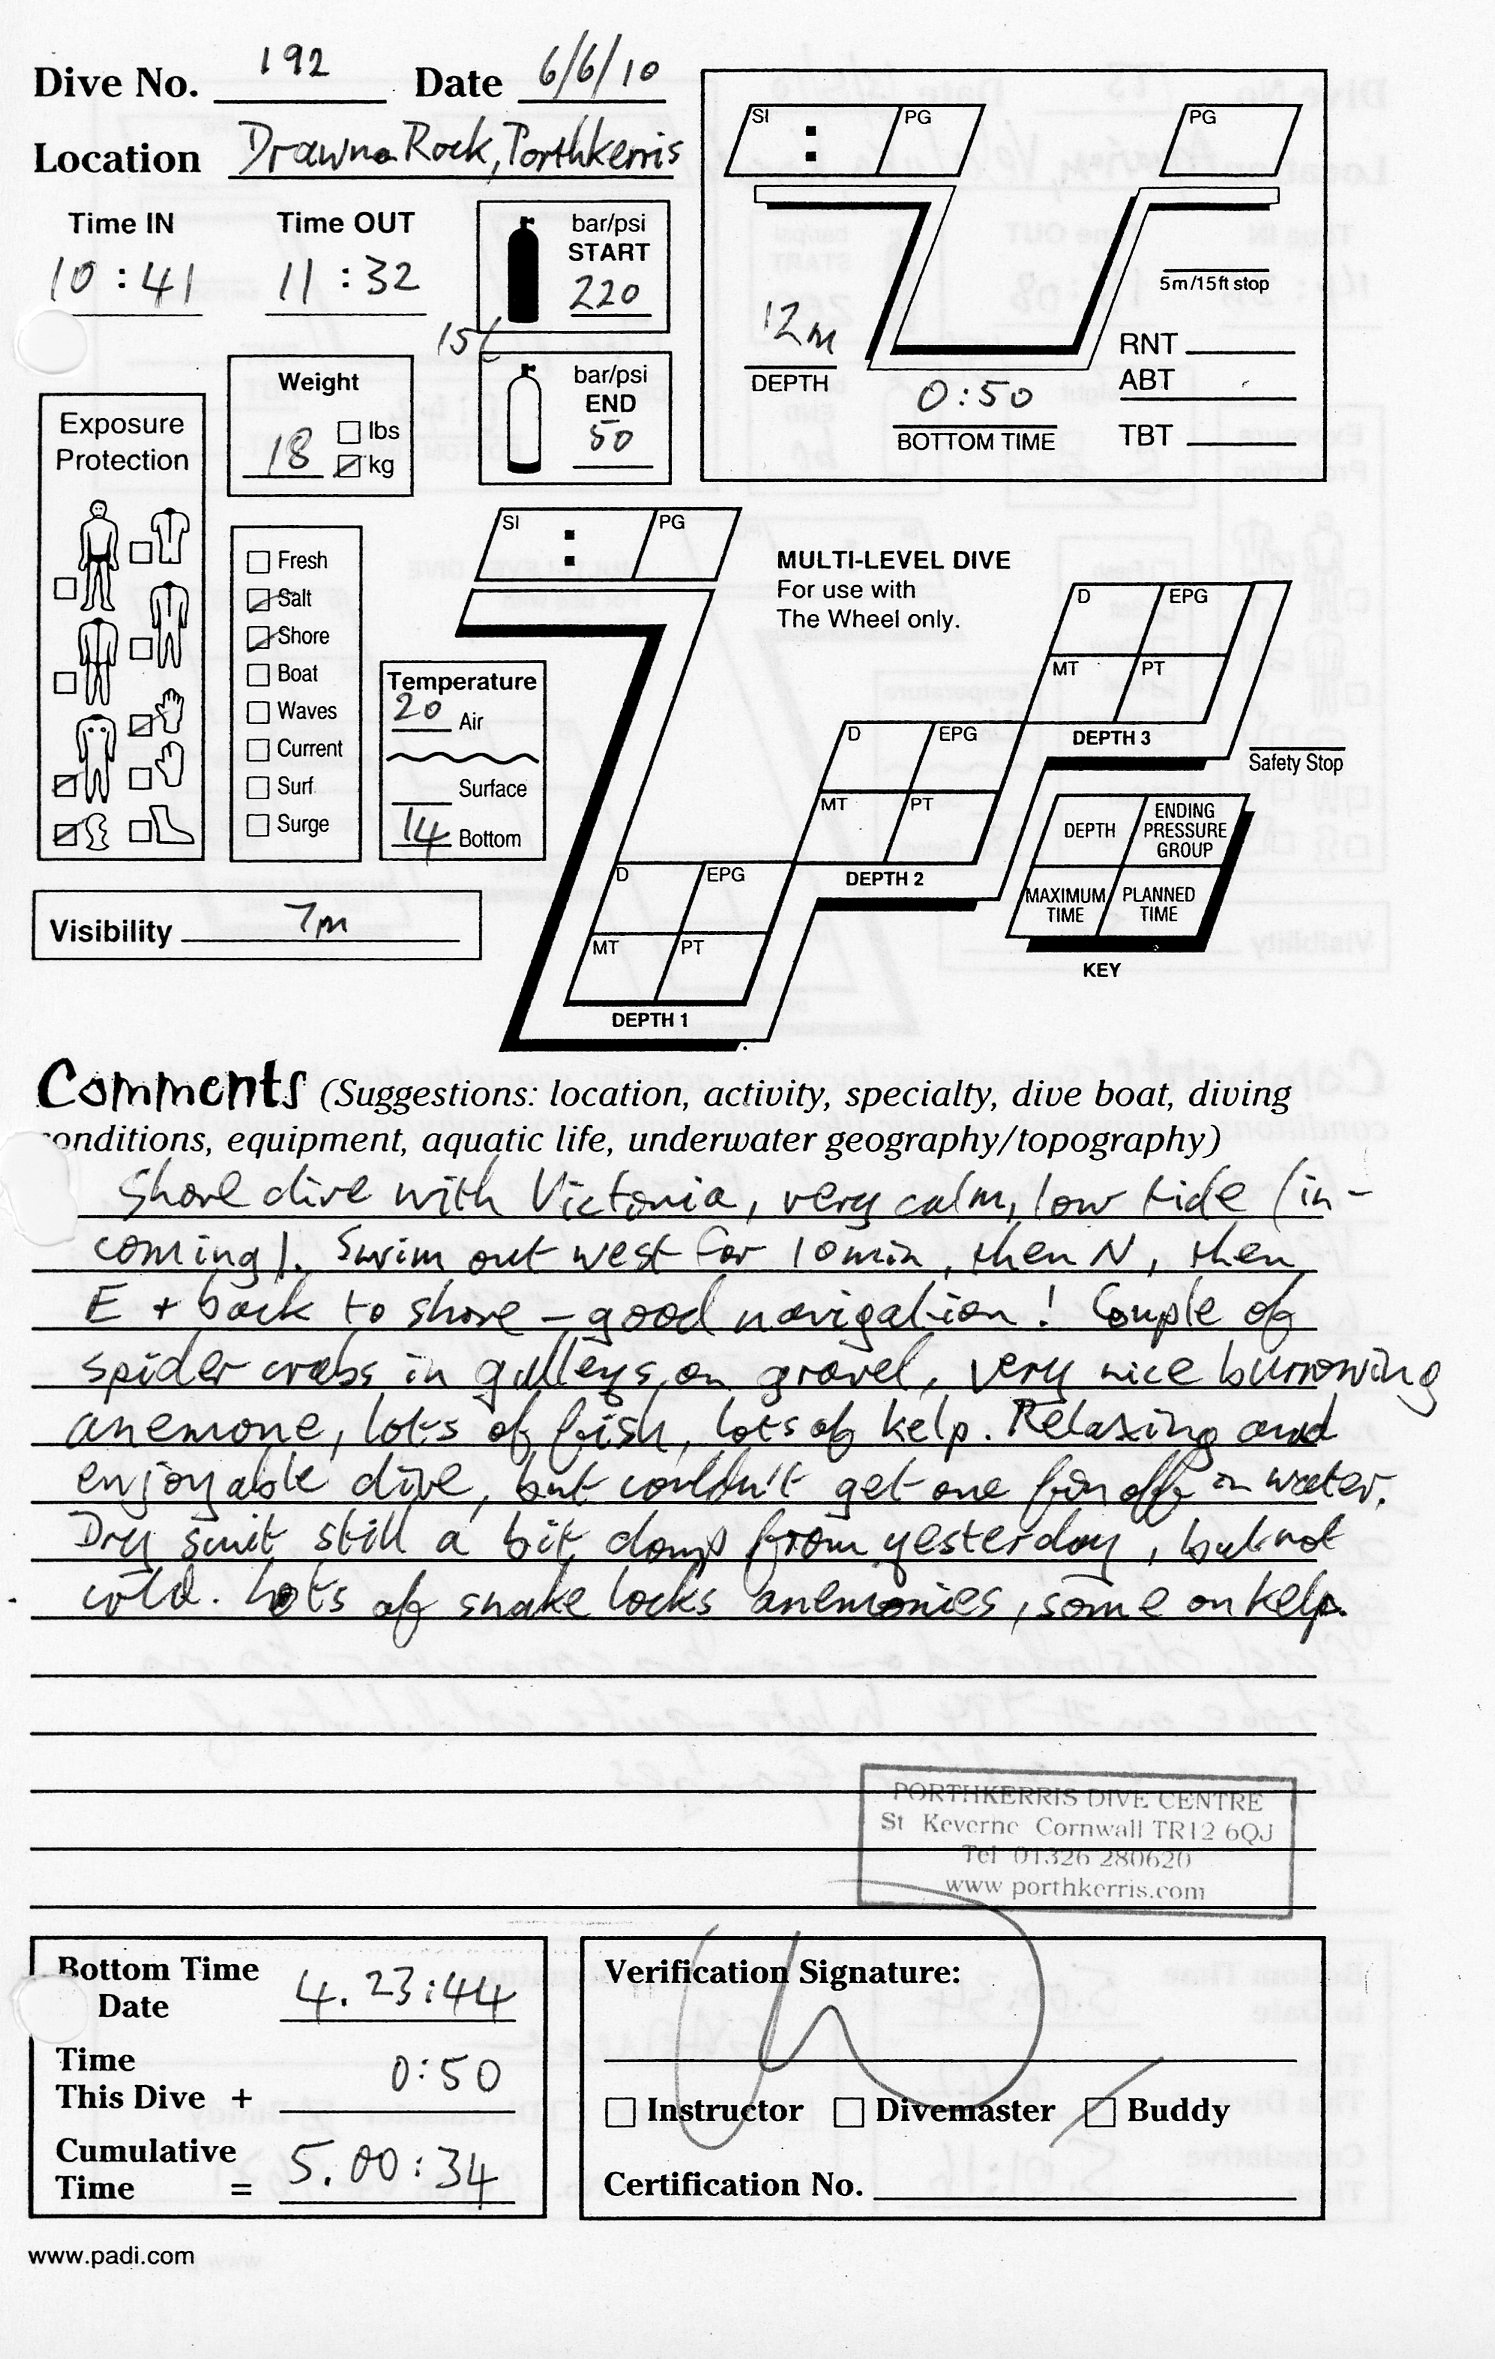 Dive No. 192 Date 6/6/10
Location Drawna Rock, Porthkerris
Time IN Time OUT
10:41 11:32
bar/psi
START
220
15l
bar/psi
END
50
SI : PG
PG
5m/15ft stop
12m
DEPTH
0:50
BOTTOM TIME
RNT
ABT
TBT
Weight
18
lbs
kg
Exposure
Protection
Fresh
Salt
Shore
Boat
Waves
Current
Surf
Surge
Temperature
20 Air
Surface
14 Bottom
Visibility 7m
SI : PG
MULTI-LEVEL DIVE
For use with
The Wheel only.
D EPG
MT PT
DEPTH 3
D EPG
MT PT
DEPTH 2
D EPG
MT PT
DEPTH 1
Safety Stop
DEPTH
ENDING
PRESSURE
GROUP
MAXIMUM
TIME
PLANNED
TIME
KEY
Comments (Suggestions: location, activity, specialty, dive boat, diving
conditions, equipment, aquatic life, underwater geography/topography)
Shore dive with Victoria, very calm, low tide (in-
coming). Swim out west for 10min, then N, then
E + back to shore – good navigation! Couple of
spider crabs in gulleys on gravel, very nice burrowing
anemone, lots of fish, lots of kelp. Relaxing and
enjoyable dive, but couldn't get one fin off in water.
Dry suit still a bit damp from yesterday, but not
cold. Lots of snake locks anemonies, some on kelp.
PORTHKERRIS DIVE CENTRE
St Keverne Cornwall TR12 6QJ
Tel 01326 280620
www porthkerris.com
Bottom Time
Date 4.23:44
Time
This Dive + 0:50
Cumulative
Time = 5.00:34
Verification Signature:
Instructor Divemaster Buddy
Certification No.
www.padi.com